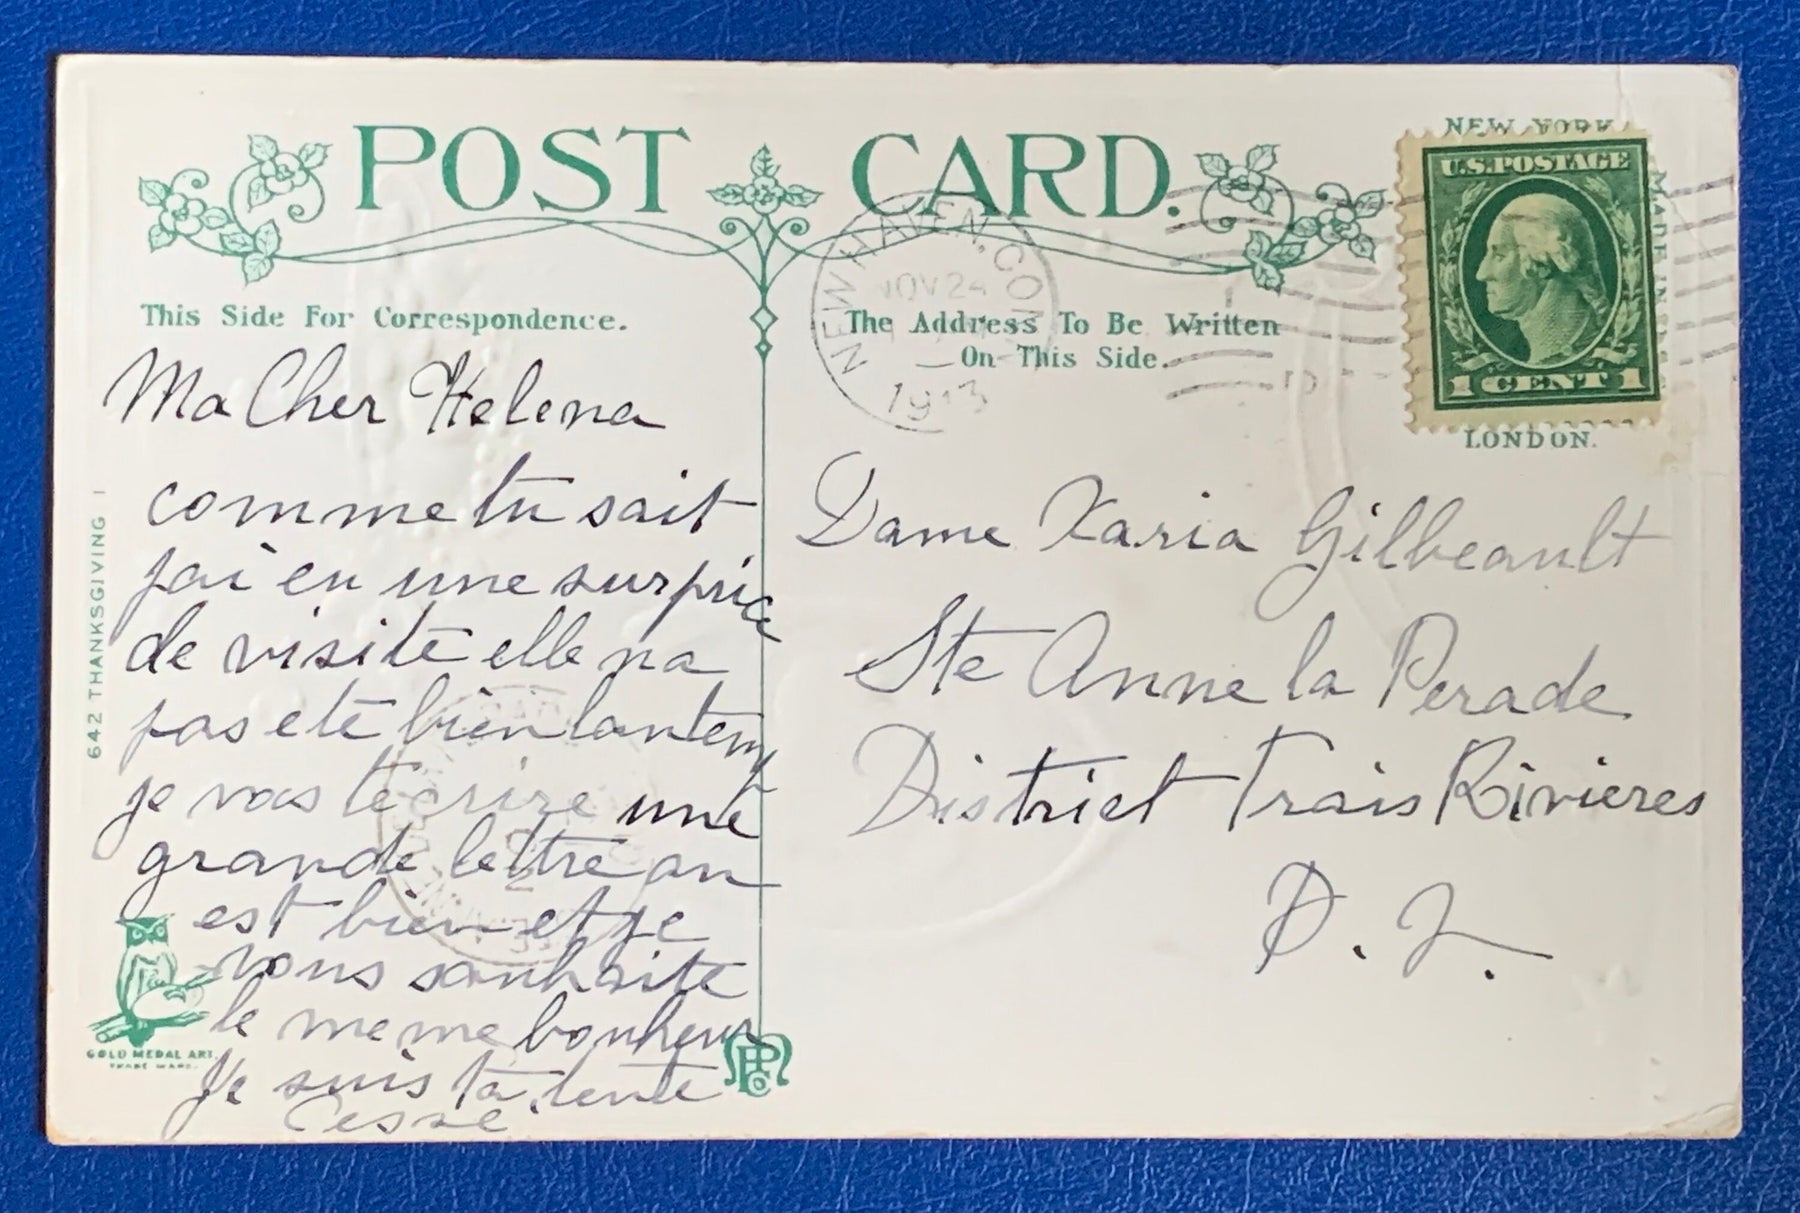 POST CARD.
NEW YORK
U.S. POSTAGE
1 CENT 1
MADE IN
LONDON.
NEW HAVEN, CONN.
NOV 24
1913
This Side For Correspondence.
Ma Cher Helena
comme tu sait
jai eu une surprice
de visite elle na
pas ete bien lantemp
je vas te crire une
grande lettre an
est bien et je
vous souhaite
le meme bonheur
Je suis ta tente
The Address To Be Written
On This Side.
Dame Xaria Gilbeault
Ste Anne la Perade
District Trais Rivieres
P. 2.
642 THANKSGIVING 1
GOLD MEDAL ART.
TRADE MARK.